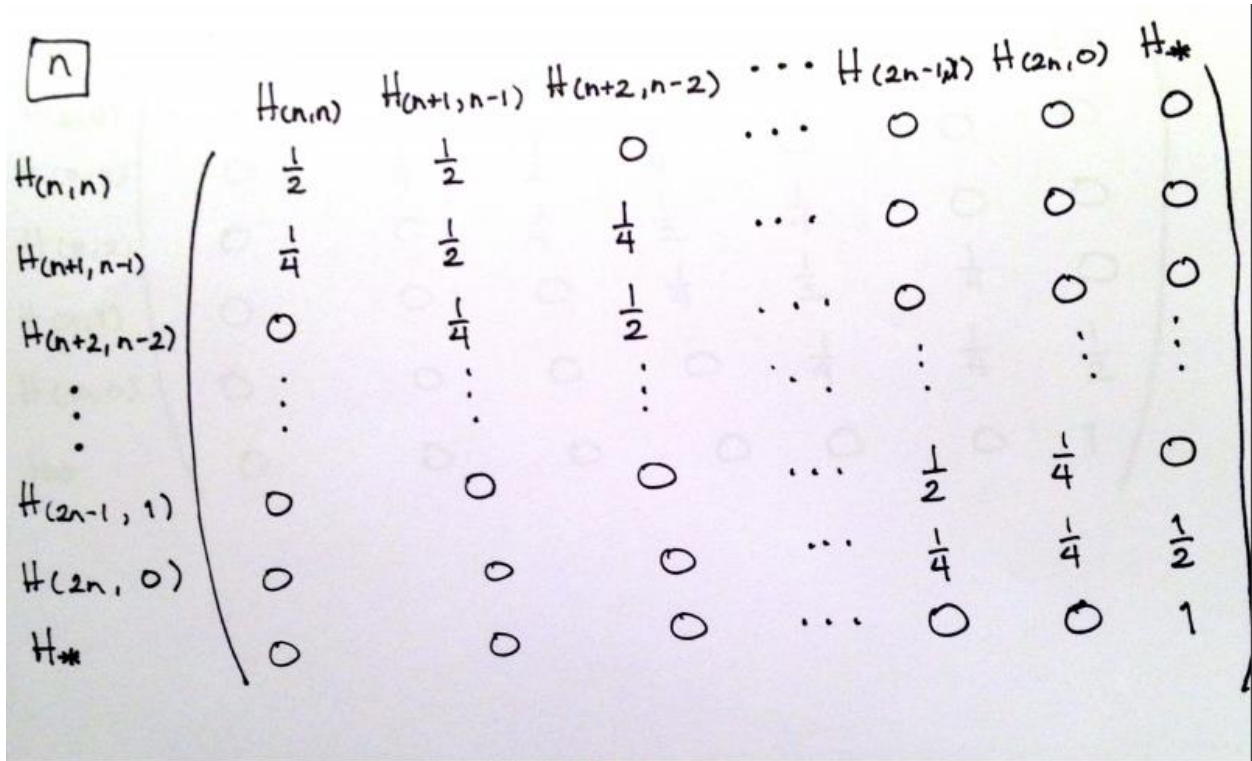 n
H(n,n) H(n+1,n-1) H(n+2,n-2) ... H(2n-1,1) H(2n,0) H*
H(n,n) 1/2 1/2 0 ... 0 0 0
H(n+1,n-1) 1/4 1/2 1/4 ... 0 0 0
H(n+2,n-2) 0 1/4 1/2 ... 0 0 0
⋮ ⋮ ⋮ ⋮ ⋱ ⋮ ⋮ ⋮
H(2n-1, 1) 0 0 0 ... 1/2 1/4 0
H(2n, 0) 0 0 0 ... 1/4 1/4 1/2
H* 0 0 0 ... 0 0 1